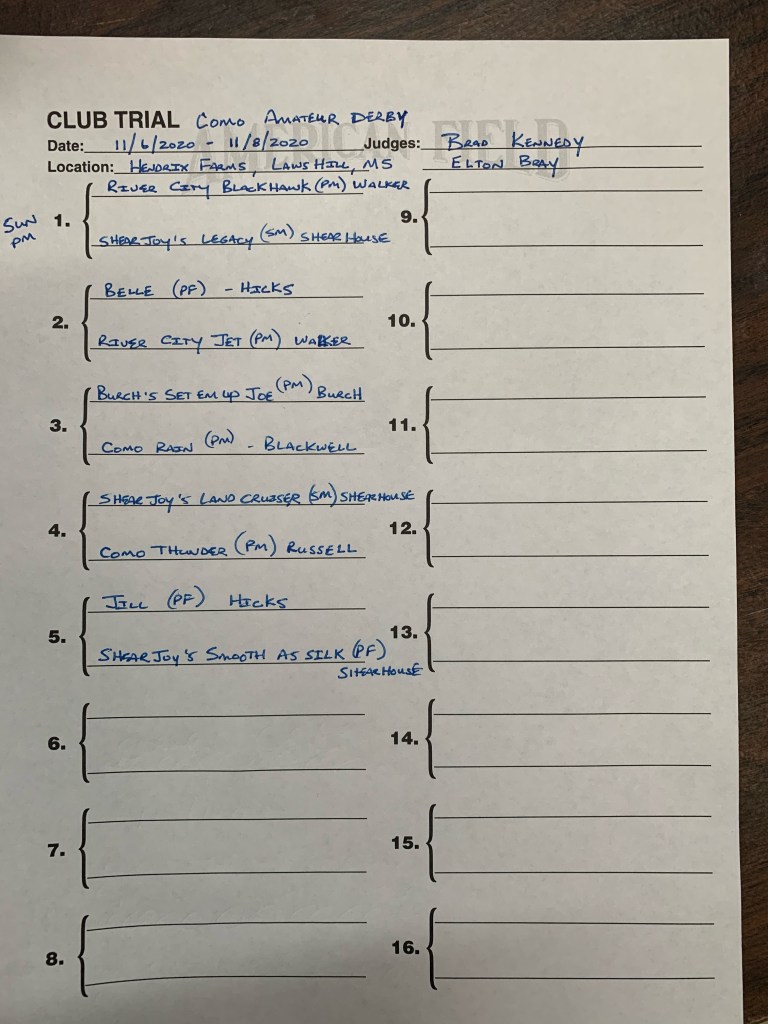 AMERICAN FIELD
CLUB TRIAL COMO AMATEUR DERBY
Date: 11/6/2020 - 11/8/2020 Judges: BRAD KENNEDY
Location: HENDRIX FARMS, LAWS HILL, MS ELTON BRAY
SUN PM
1. RIVER CITY BLACKHAWK (PM) WALKER
SHEARJOY'S LEGACY (SM) SHEARHOUSE
2. BELLE (PF) - HICKS
RIVER CITY JET (PM) WALKER
3. BURCH'S SET EM UP JOE (PM) BURCH
COMO RAIN (PM) - BLACKWELL
4. SHEARJOY'S LAND CRUISER (SM) SHEARHOUSE
COMO THUNDER (PM) RUSSELL
5. JILL (PF) HICKS
SHEARJOY'S SMOOTH AS SILK (PF)
SHEARHOUSE
6.
7.
8.
9.
10.
11.
12.
13.
14.
15.
16.